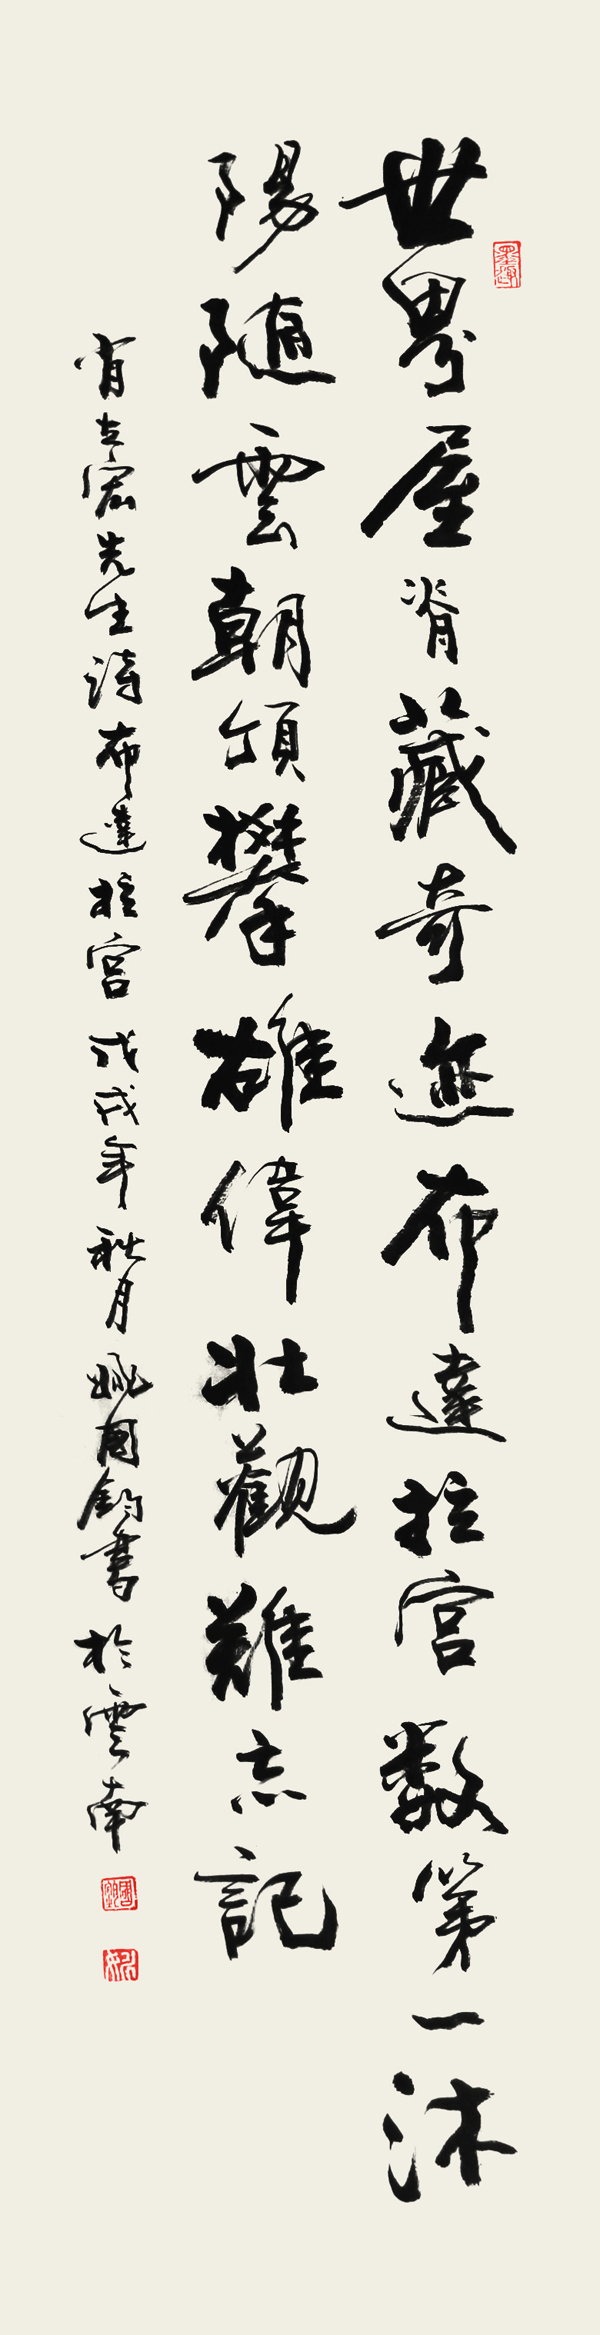 世界屋脊藏奇迹布達拉宫数第一沐
陽随雲朝頂攀雄偉壯觀難忘記
肖宏先生詩布達拉宫戊戌年秋月姚國鈞書於雲南